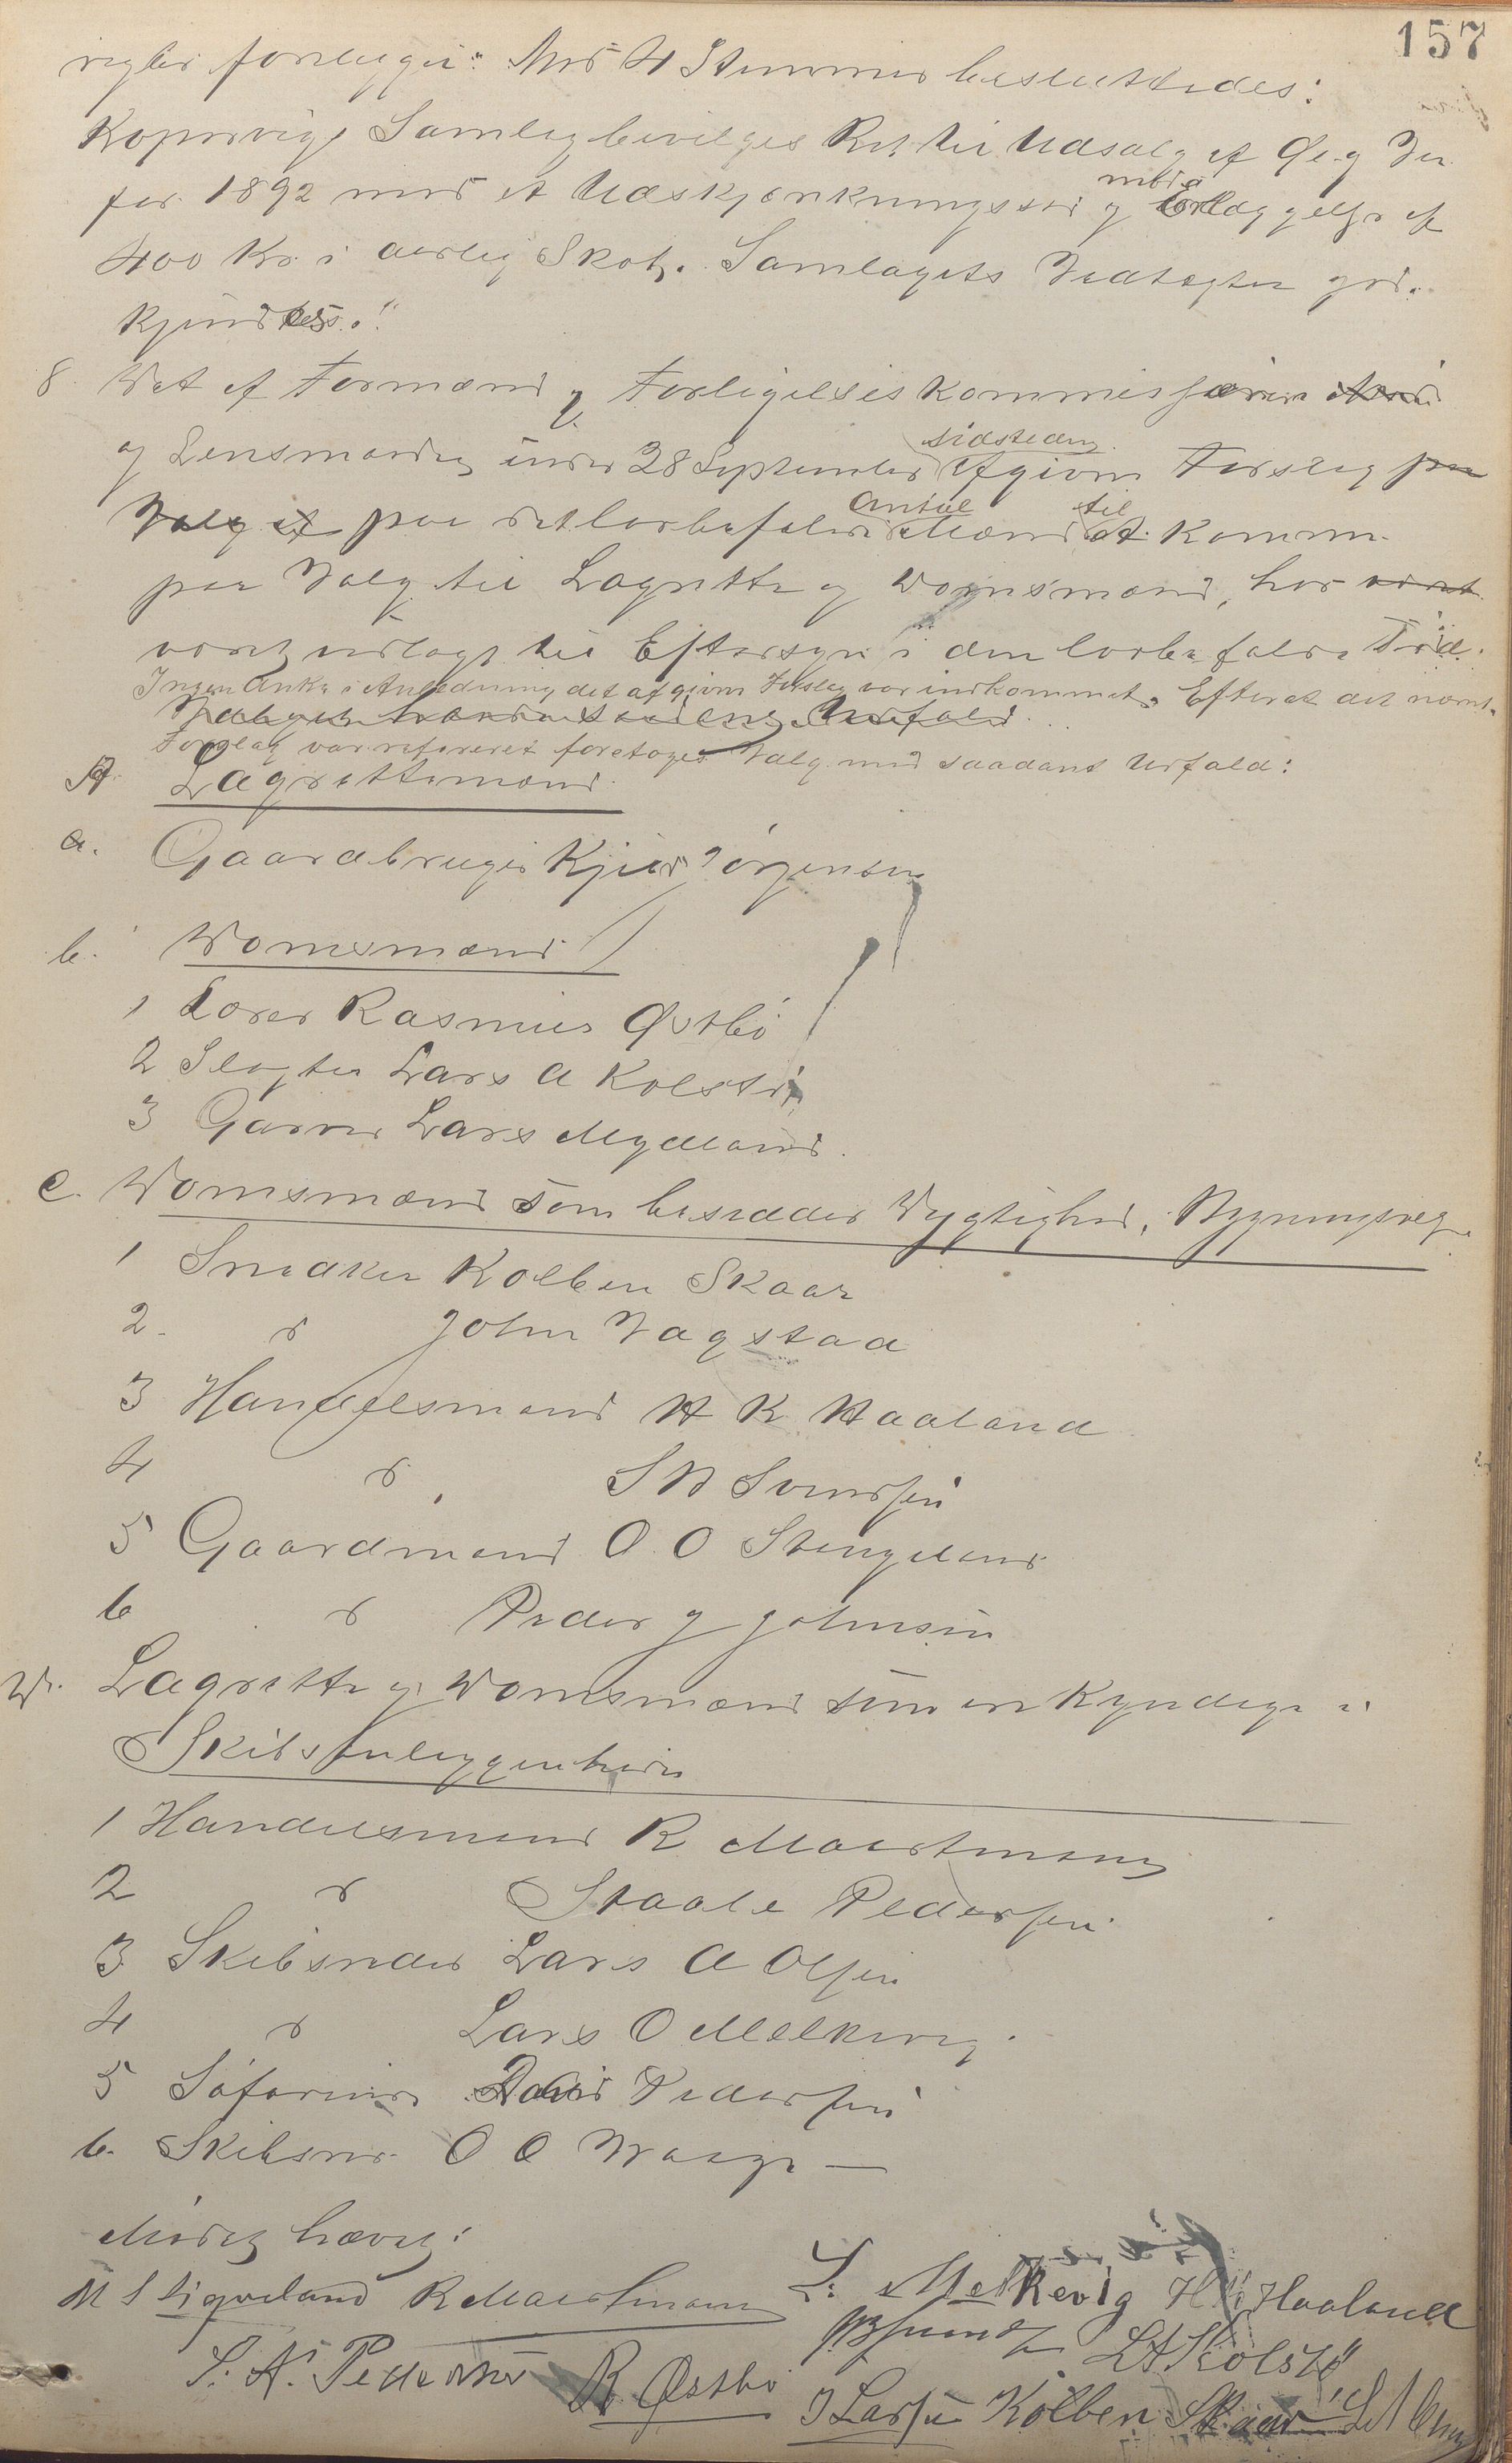 157
regler foreligger". Med 4 Stemmer besluttedes:
Kopervigs Samlag bevilges Ret til Udsalg af Øl og Vin
for 1892 med et Udskjænkningssted og mod Erlæggelse af
400 Kr. i aarlig Skat. Samlagets Vedtægter god-
kjendtes."
8. Det af Formænd og Forligelseskommissærer
og Lensmanden under 28 September sidstleden afgivne Forslag paa
Valg af paa det lovbefalede Antal Mænd til at komme
paa Valg til Lagrette og Domsmænd, har været
været udlagt til Eftersyn i den lovbefalede Tid.
Ingen Anke i Anledning det afgivne Forslag var indkommet. Efterat det nævnte
Forslag var refereret foretoges Valg med saadant Udfald:
A. Lagrettemænd
a. Gaardbruger Kjed Jørgensen
b. Domsmænd
1 Lærer Rasmus Østbö
2 Slagter Lars A Kolstö
3 Garver Lars Mydland
c. Domsmænd som besidder Dygtighed i Bygningsveg.
1 Snedker Kolben Skaar
2. d John Vagstad
3 Handelsmand H K Haaland
4 d S N Svendsen
5 Gaardmand O. O Stangeland
6 d Peder J Johnsen
D. Lagrette og Domsmænd som er kyndige i
Skibsanliggender
1 Handelsmand R Maartmann
2 d Staale Pedersen
3 Skibsreder Lars A Olsen
4 d Lars O Melkevig
5 Söfarende Peder Pedersen
6. Skibsred. O O Waage —
Mödet hævet:
M S Liqveland R Maartmann L. Melkevig H K Haaland
L A Kolstö
S. A. Pedersen R Østbö J Larsen Kolben Skaar